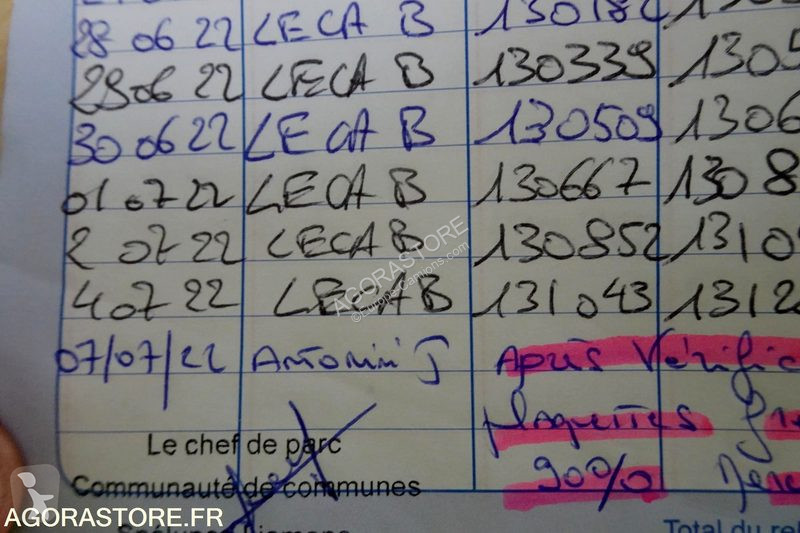 28 06 22 LECA B 130182 130
29 06 22 LECA B 130339 1305
30 06 22 LECA B 130509 1306
01 07 22 LECA B 130667 1308
2 07 22 LECA B 130852 1310
4 07 22 LECA B 131043 1312
07/07/22 Antonini J Après Vérific
plaquettes
Le chef de parc
90%
Communauté de communes
AGORASTORE
©Europe-Camions.com
AGORASTORE.FR
Total du rel